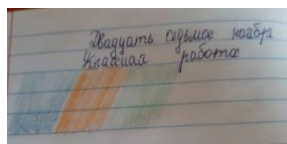 Двадцать седьмое ноября
Классная работа